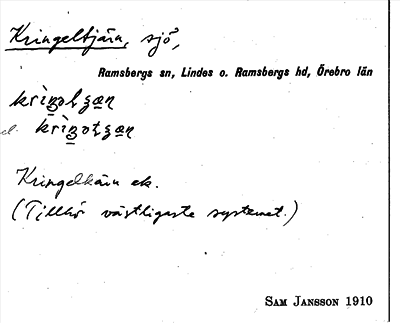 Kringeltjärn, sjö,
Ramsbergs sn, Lindes o. Ramsbergs hd, Örebro län
el.
Kringelkärn ek.
(Tillhör västligaste systemet.)
SAM JANSSON 1910